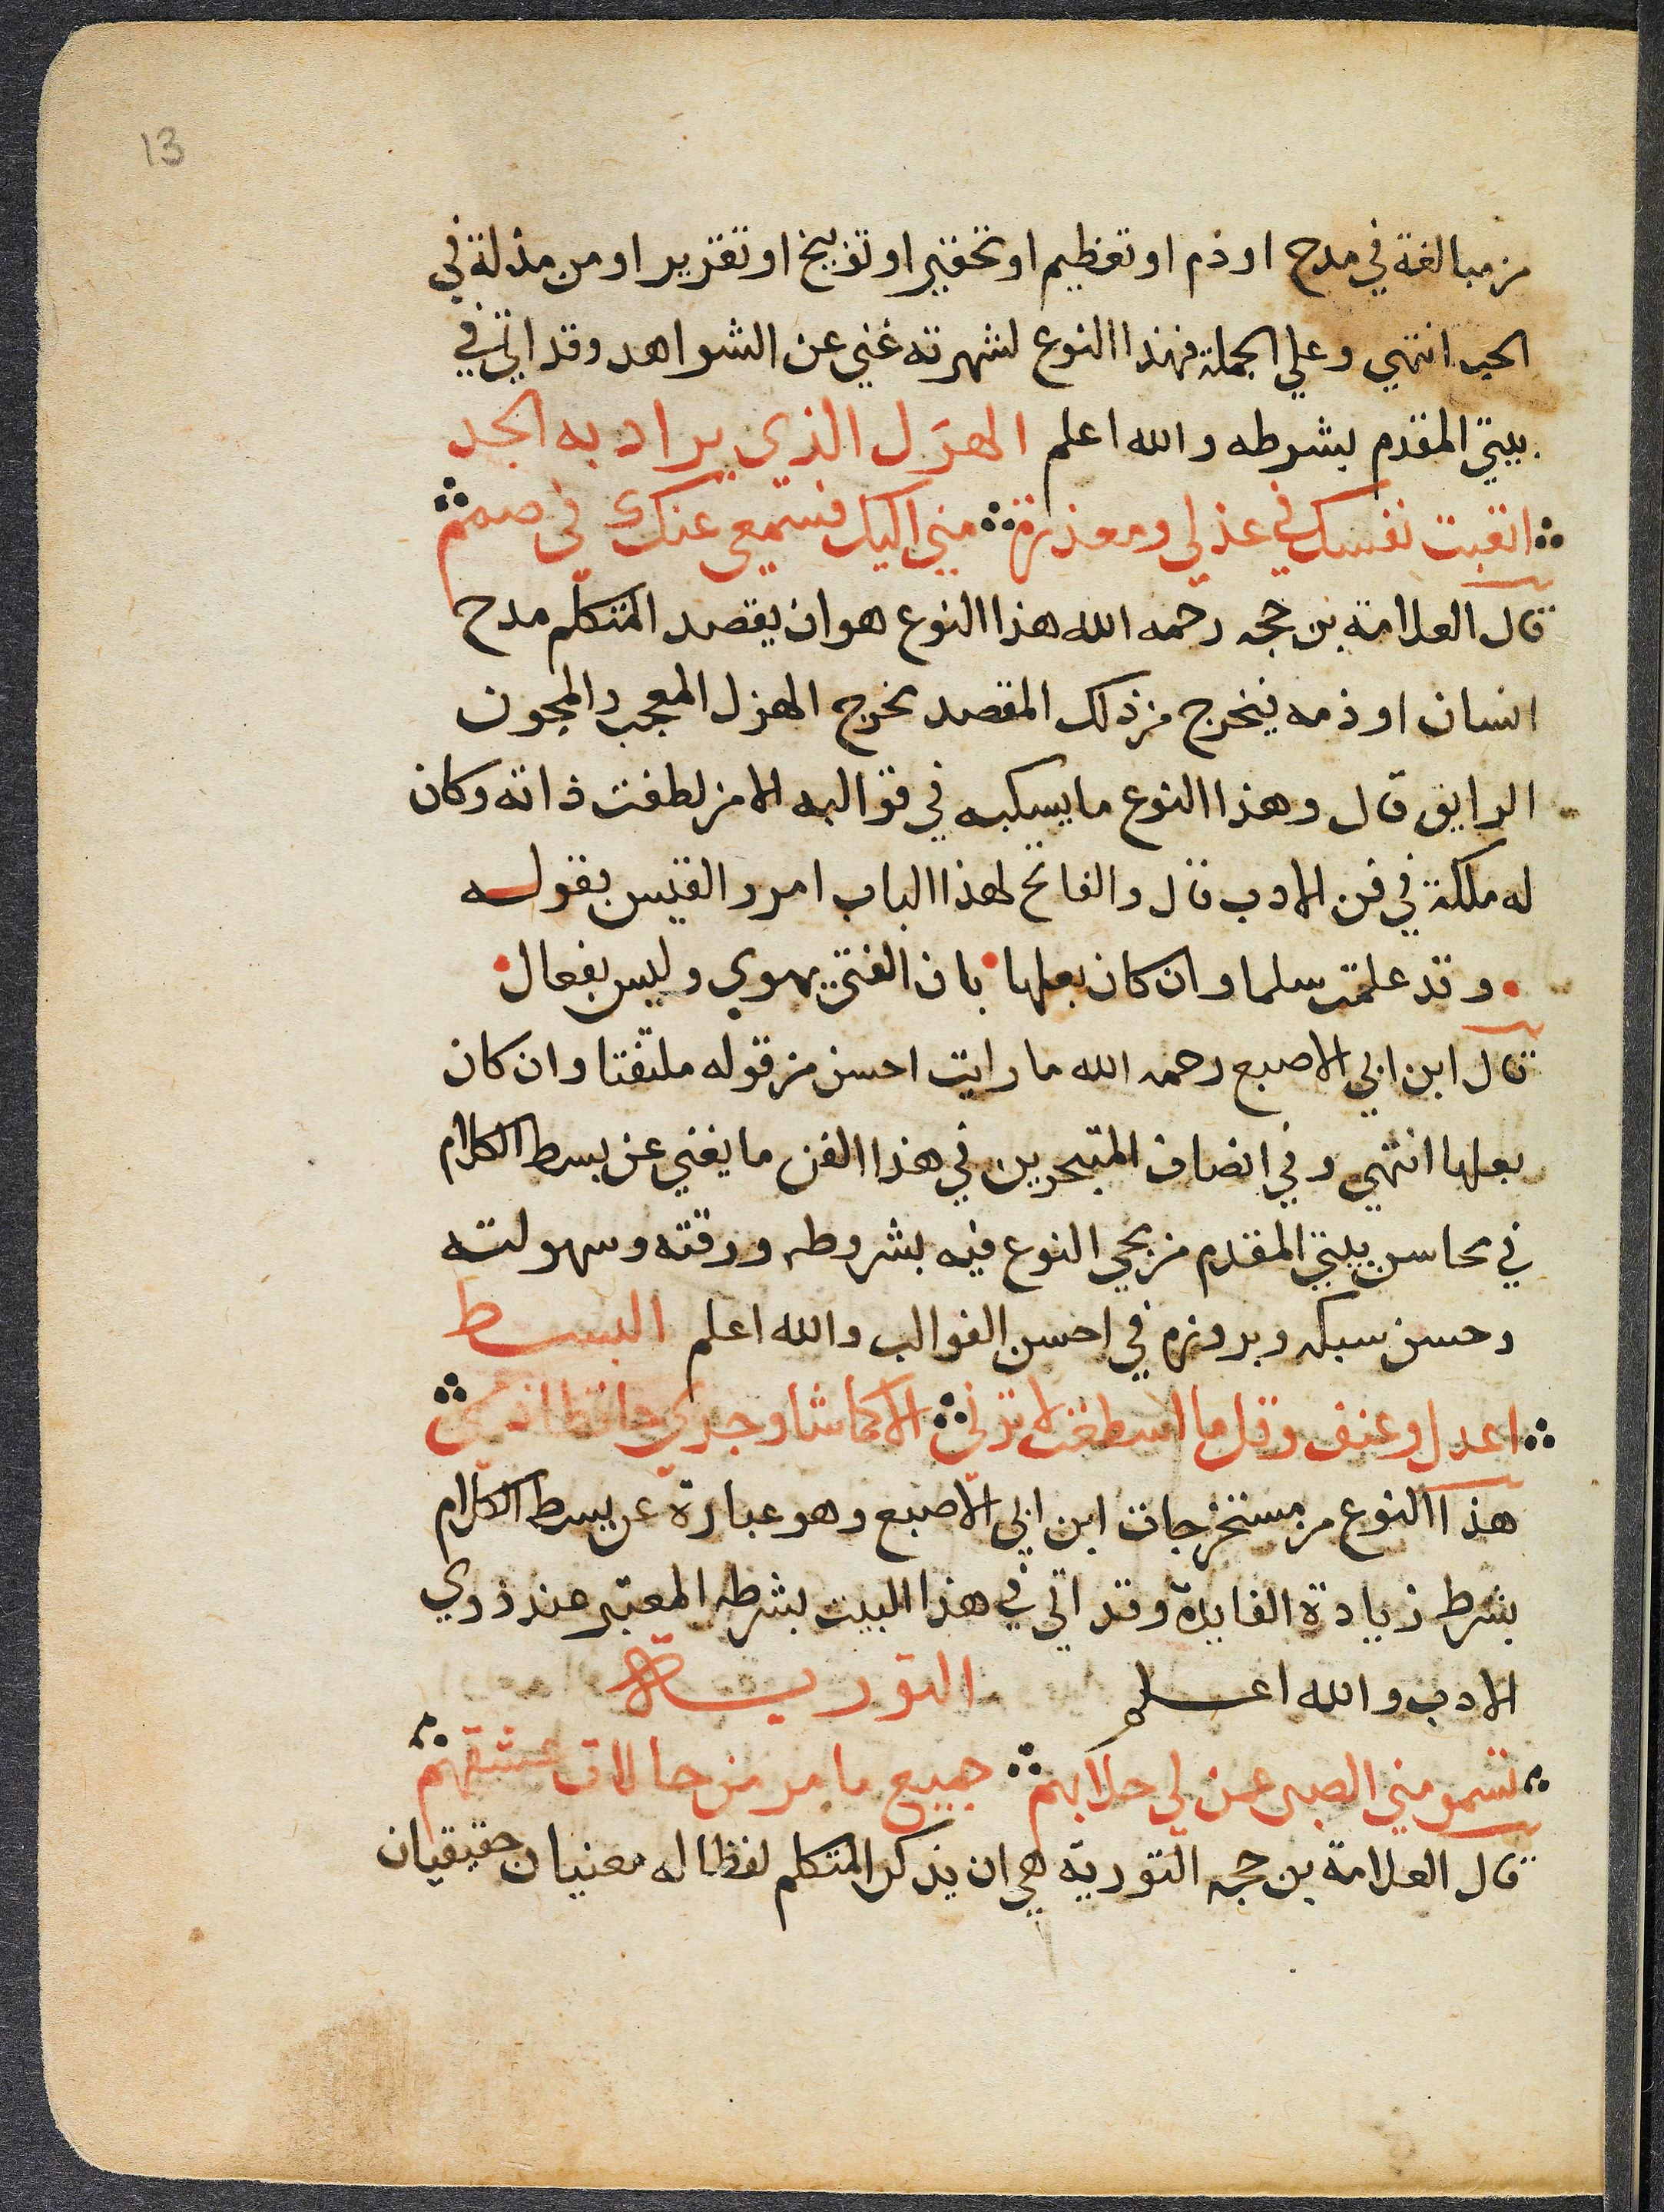 13
من مبالغة في مدح او ذم او تعظيم او تحقير او توبيخ او تقرير او من مذلة في
الحب انتهي وعلي الجملة فهذا النوع لشهرته غني عن الشواهد وقد اتي في
بيتي المقدم بشرطه والله اعلم الهزل الذي يراد به الجد
اتعبت نفسك في عذلي ومعذرة مني اليك فسمعي عنك في صمم
قال العلامة بن حجه رحمه الله هذا النوع هو ان يقصد المتكلم مدح
انسان او ذمه فيخرج من ذلك المقصد مخرج الهزل المعجب والمجون
الرايق قال وهذا النوع ما يسبكه في قوالبه الا من لطفت ذاته وكان
له ملكة في فن الادب قال والفاتح لهذا الباب امرو القيس بقوله
وقد علمت سلما وان كان بعلها بان الفتي يهوي وليس بفعال
قال ابن ابي الاصبع رحمه الله ما رايت احسن من قوله ملتفتا وان كان
بعلها انتهي وفي انصاف المتبحرين في هذا الفن ما يغني عن بسط الكلام
في محاسن بيتي المقدم من مجي النوع فيه بشروطه ورقته وسهولته
وحسن سبكه وبروزه في احسن القوالب والله اعلم البسط
اعدل وعنف وقل ما اسطعت لا ترني الا كما شا وجدي حافظا ذممي
هذا النوع من مستخرجات ابن ابي الاصبع وهو عبارة عن بسط الكلام
بشرط زيادة الفايدة وقد اتي في هذا البيت بشرطه المعتبر عند ذوي
الادب والله اعلم التورية
مني الصبر عن لي حلا بهم جميع ما مر من حالات عشقهم
قال العلامة بن حجه التورية هي ان يذكر المتكلم لفظا له معنيان حقيقيان